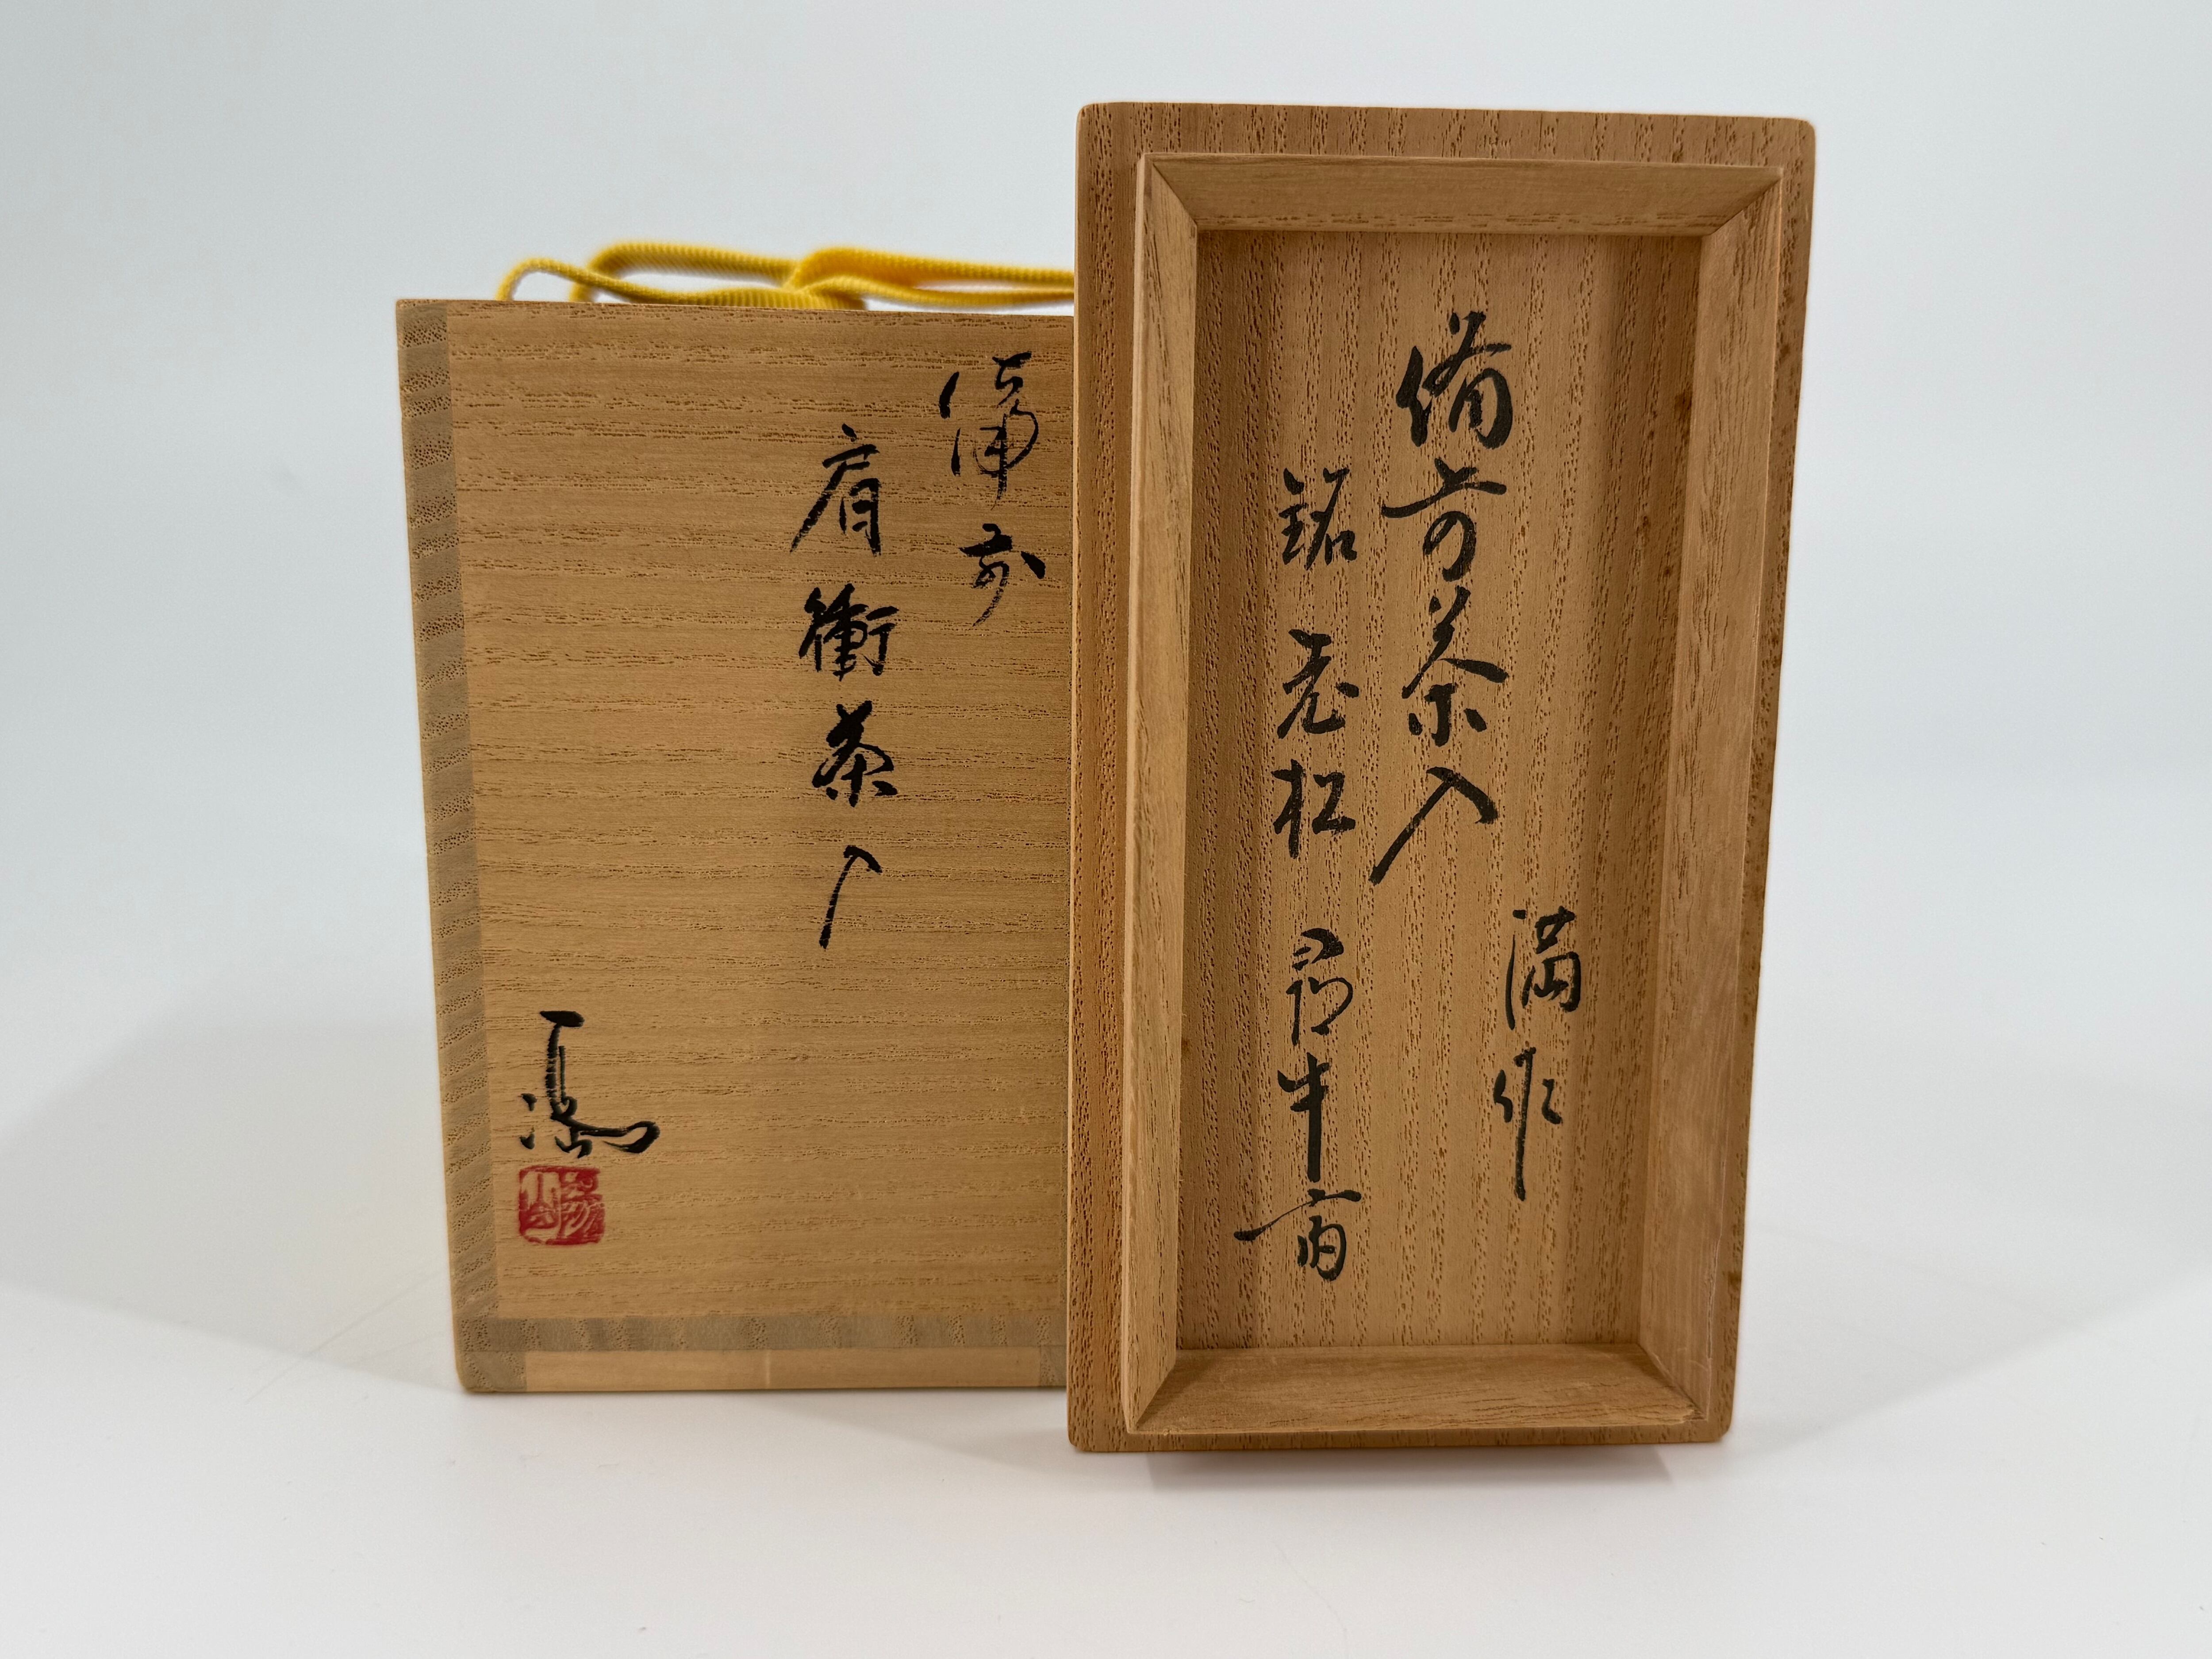 備前
肩衝茶入
満
備前茶入
満作
銘 老松 尋牛斎